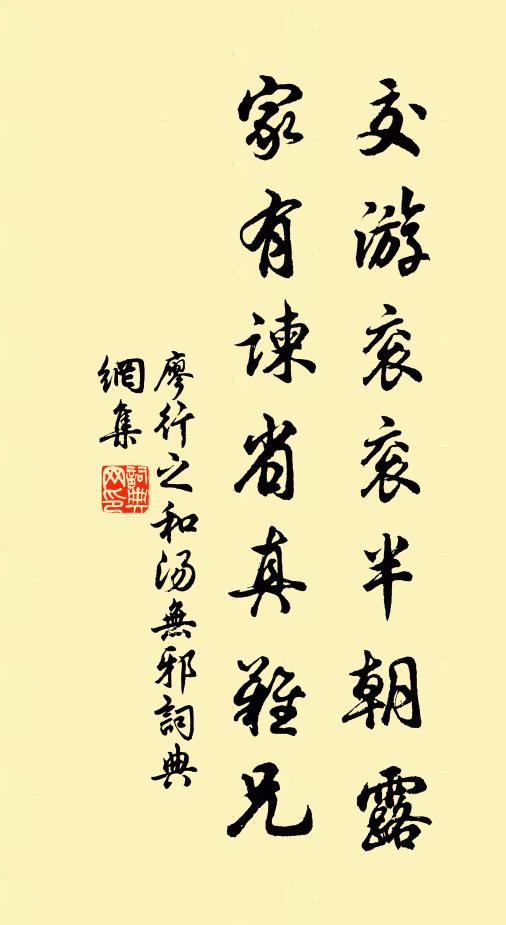 交游衮衮半朝露
家有谏省真難兄
廖行之和汤無邪詞典
網集
詞典
网印